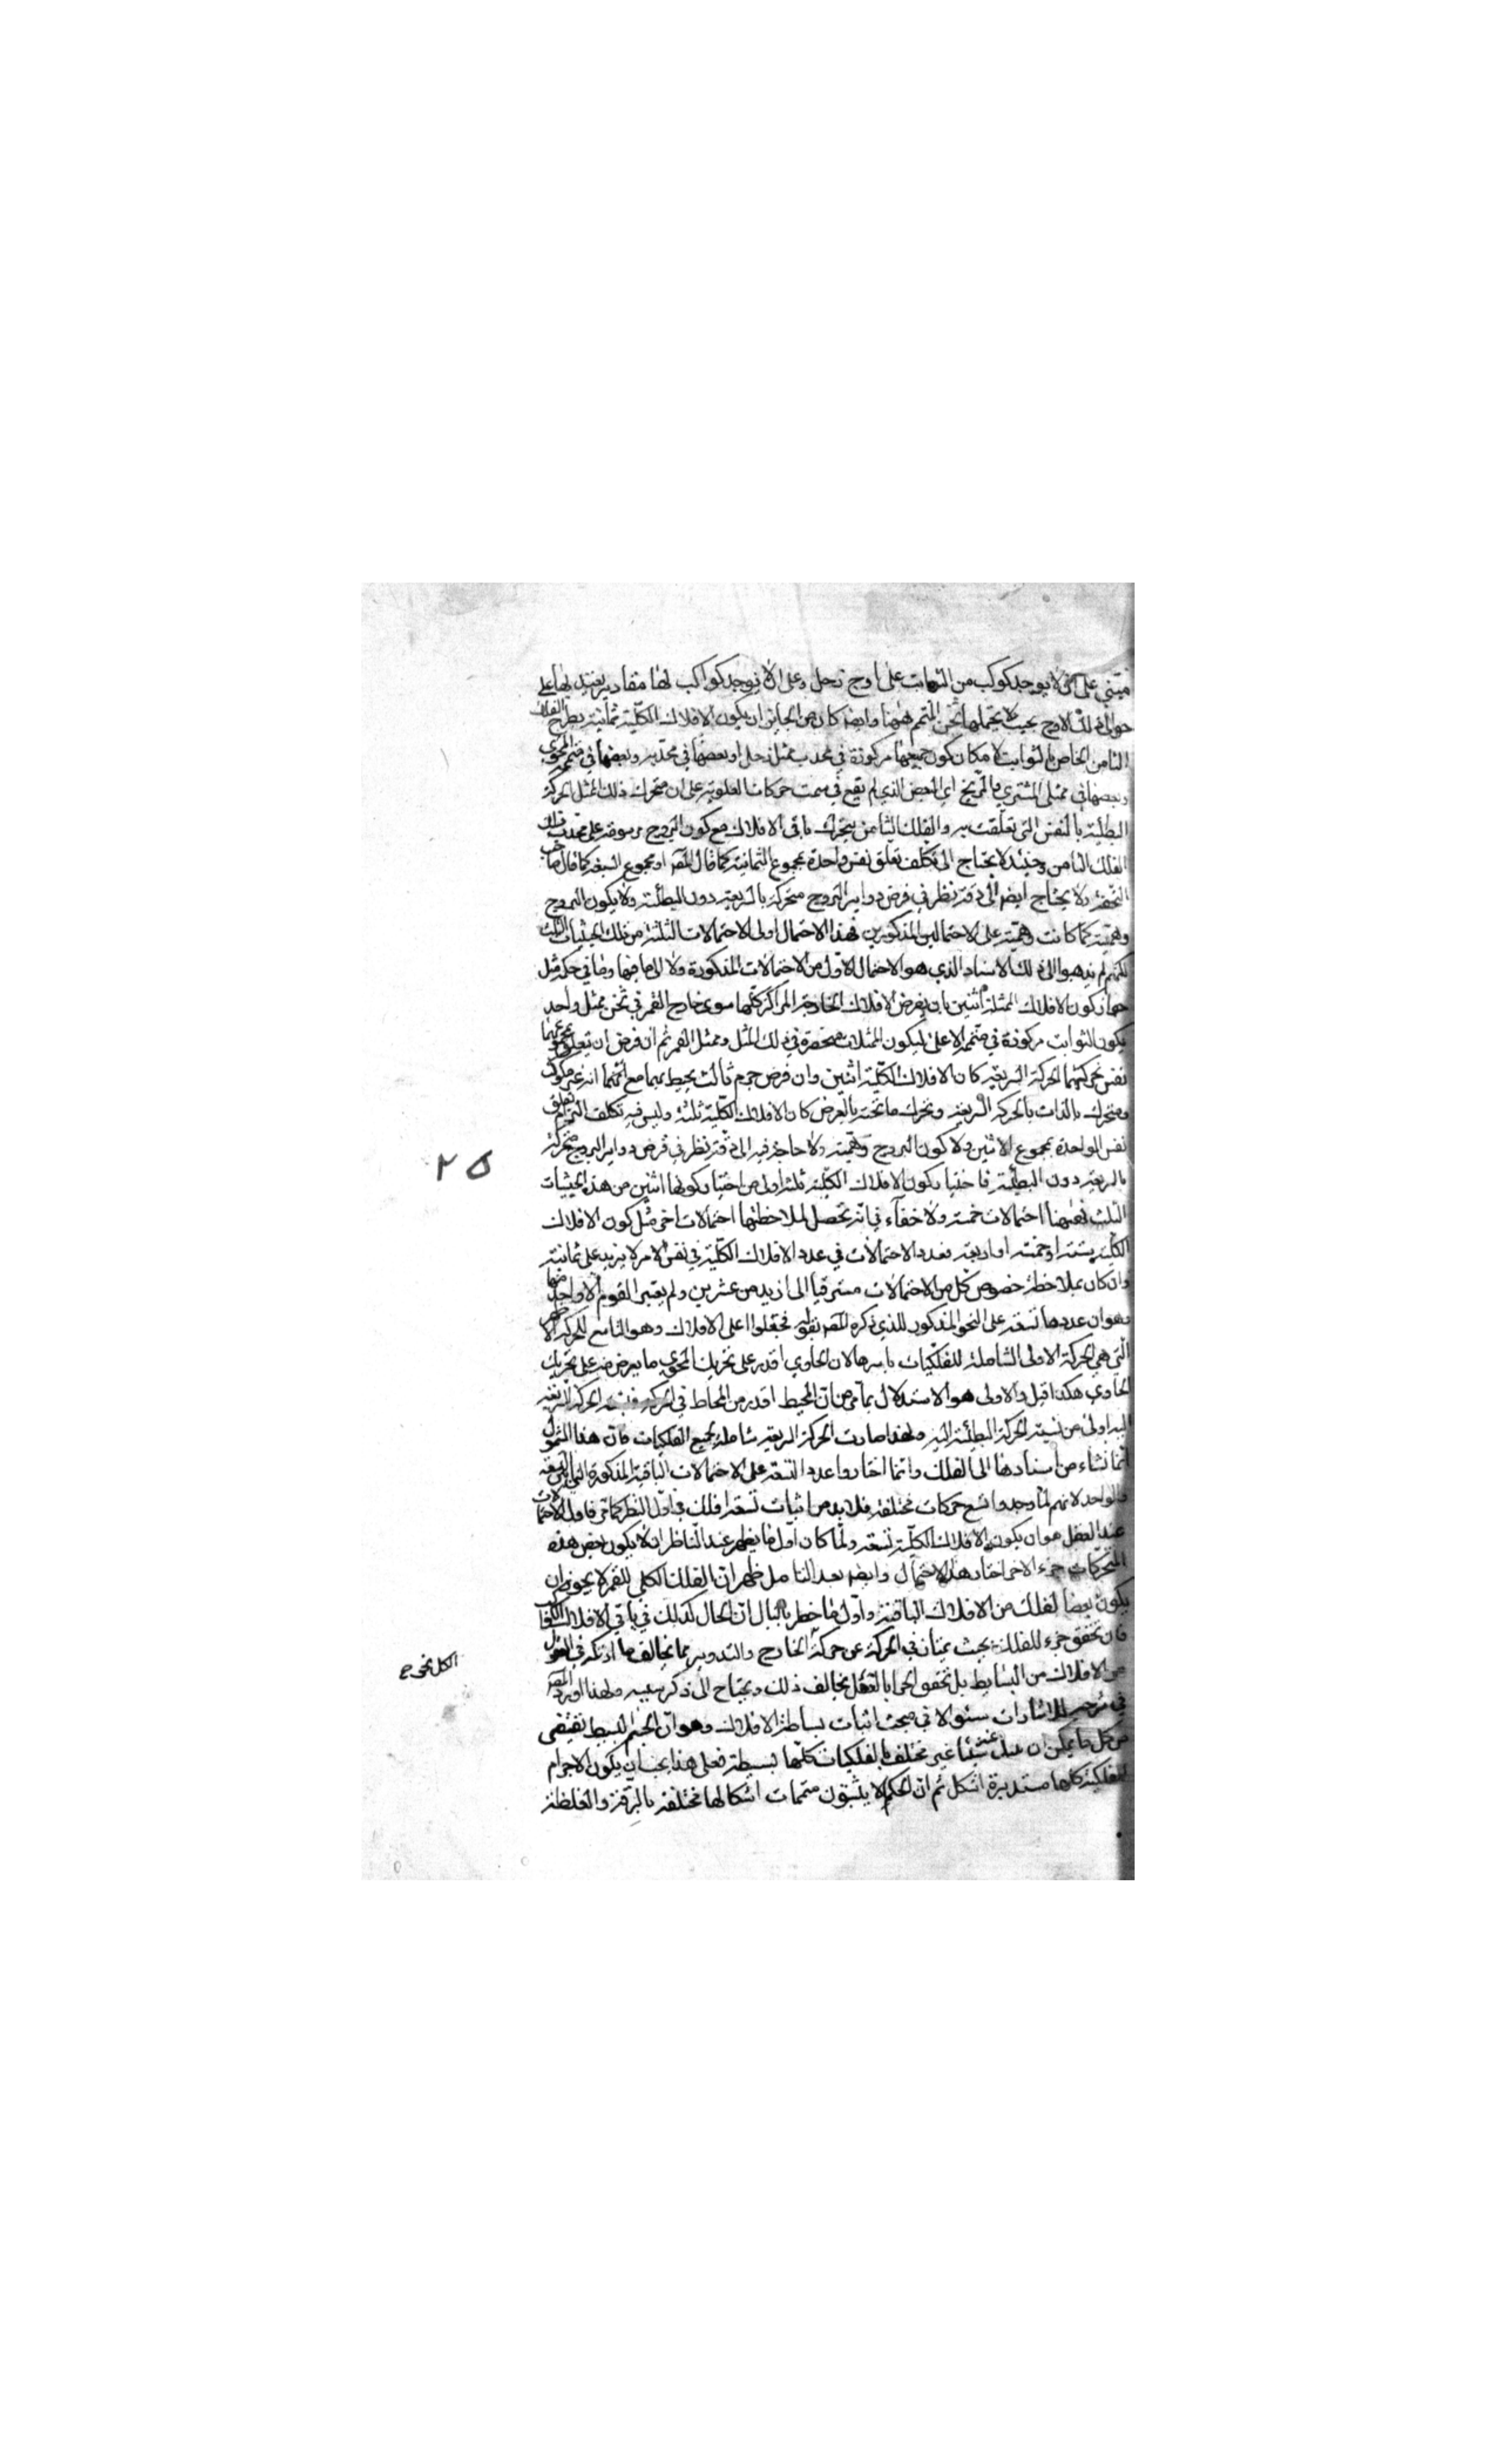 مبتنى على ان لا يوجد كوكب من الثوابت على اوج زحل وعلى ان لا يوجد كواكب لها مقادير يعتد بها على
حوالى ذلك الاوج بحيث لا يحتملها ثخن المتمم ههنا وايضا كان من الجايز ان يكون الافلاك الكلية ثمانية بطرح الفلك
الثامن الخاص بالثوابت لامكان كون جميعها مركوزة في محدب ممثل زحل او بعضها في محدبه وبعضها في متممه المحوى
وبعضها في ممثلى المشترى والمريخ اى البعض الذي لم يقع في سمت حركات العلوية على ان متحرك ذلك الممثل الحركة
البطيئة بالنفس التى تعلقت به والفلك الثامن يتحرك باقى الافلاك مع كون البروج مرسومة على محدب
الفلك الثامن وحينئذ لا يحتاج الى تكلف تعلق نفس واحدة بمجموع الثمانية كما قال المص او مجموع السبعة كما قال صاحب
التحفة ولا يحتاج ايضا الى دقة نظر في فرض دواير البروج متحركة بالسريعة دون البطيئة ولا يكون البروج
وهمية كما كانت وهمية على الاحتمالين المذكورين فهذا الاحتمال اولى الاحتمالات الثلثة من تلك الحيثيات الثلث
لكنهم لم يذهبوا الى ذلك الاسناد الذي هو الاحتمال الاول من الاحتمالات المذكورة ولا الى ما فيها وما في حكمه مثل
جواز كون الافلاك الممثلة اثنين بان يفرض الافلاك الخارجة المراكز كلها سوى خارج القمر في ثخن ممثل واحد
يكون الثوابت مركوزة في متممه الاعلى ليكون الممثلات منحصرة في ذلك الممثل وممثل القمر ثم ان فرض ان تعلق بمجموعهما
نفس تحركهما الحركة السريعة كان الافلاك الكلية اثنين وان فرض جرم ثالث يحيط بهما مع انه غير مكوكب
ومتحرك بالذات بالحركة السريعة وتحرك ما تحته بالعرض كان الافلاك الكلية ثلثة وليس فيه تكلف التزام تعلق
نفس الواحدة بمجموع الاثنين ولا كون البروج وهمية ولا حاجة فيه الى دقة نظر في فرض دواير البروج متحركة
بالسريعة دون البطيئة فاختيار كون الافلاك الكلية ثلثة اولى من اختيار كونها اثنين من هذه الحيثيات
الثلث فههنا احتمالات خمسة ولا خفاء في انه تحصل لملاحظتها احتمالات اخرى مثل كون الافلاك
الكلية ستة او خمسة او اربعة فعدد الاحتمالات في عدد الافلاك الكلية في نفس الامر لا يزيد على ثمانية
وان كان بملاحظة خصوص كل من الاحتمالات مسترقيا الى ازيد من عشرين ولم يعتبر القوم الا واحدا منها
وهو ان عددها تسعة على النحو المذكور للذي ذكره المص بقوله فجعلوا اعلى الافلاك وهو التاسع للحركة
التي هي الحركة الاولى الشاملة للفلكيات باسرها لان الحاوى اقدر على تحريك المحوى ما يعرض منه على تحريك
الحاوى هكذا قيل والاولى هو الاستدلال بما مر من ان المحيط اقدر من المحاط في الحركة الحركة السريعة
اليه اولى من نسبة الحركة البطيئة اليه ولهذا صارت الحركة السريعة شاملة لجميع الفلكيات فان هذا الشمول
انما نشاء من اسنادها الى الفلك وانما اختاروا عدد التسعة على الاحتمالات الباقية المذكورة
والواحد لانهم لما وجدوا تسع حركات مختلفة فلا بد من اثبات تسعة افلاك في اول النظر كما مر فاول الاحتمالات
عند العقل هو ان يكون الافلاك الكلية تسعة ولما كان اول ما يظهر عند الناظر ان لا يكون بعض هذه
المتحركات جزء الاخر اختار هذا الاحتمال وايضا بعد التامل ظهر ان الفلك الكلى للقمر لا يجوز ان
يكون بعضا لفلك من الافلاك الباقية واول ما خطر بالبال ان الحال كذلك في باقي الافلاك
فان تحقق جزء للفلك بحيث يمتاز في الحركة عن حركة الخارج والتدوير مما يخالف ما ادركه في العقول
من الافلاك من البسايط بل تحقق اجزاء بالفعل يخالف ذلك ويحتاج الى ذكر سببه ولهذا اورد المص
في شرحه للاشارات سئوالا في مبحث اثبات بساطة الافلاك وهو ان الجسم البسيط يقتضى
من كل ما يمكن ان شيئا غير مختلف والفلكيات كلها بسيطة فعلى هذا يجب ان يكون الاجرام
الفلكية كلها مستديرة الشكل ثم ان الحكم لا يثبتون متممات اشكالها مختلفة بالرقة والغلظة
٢٥